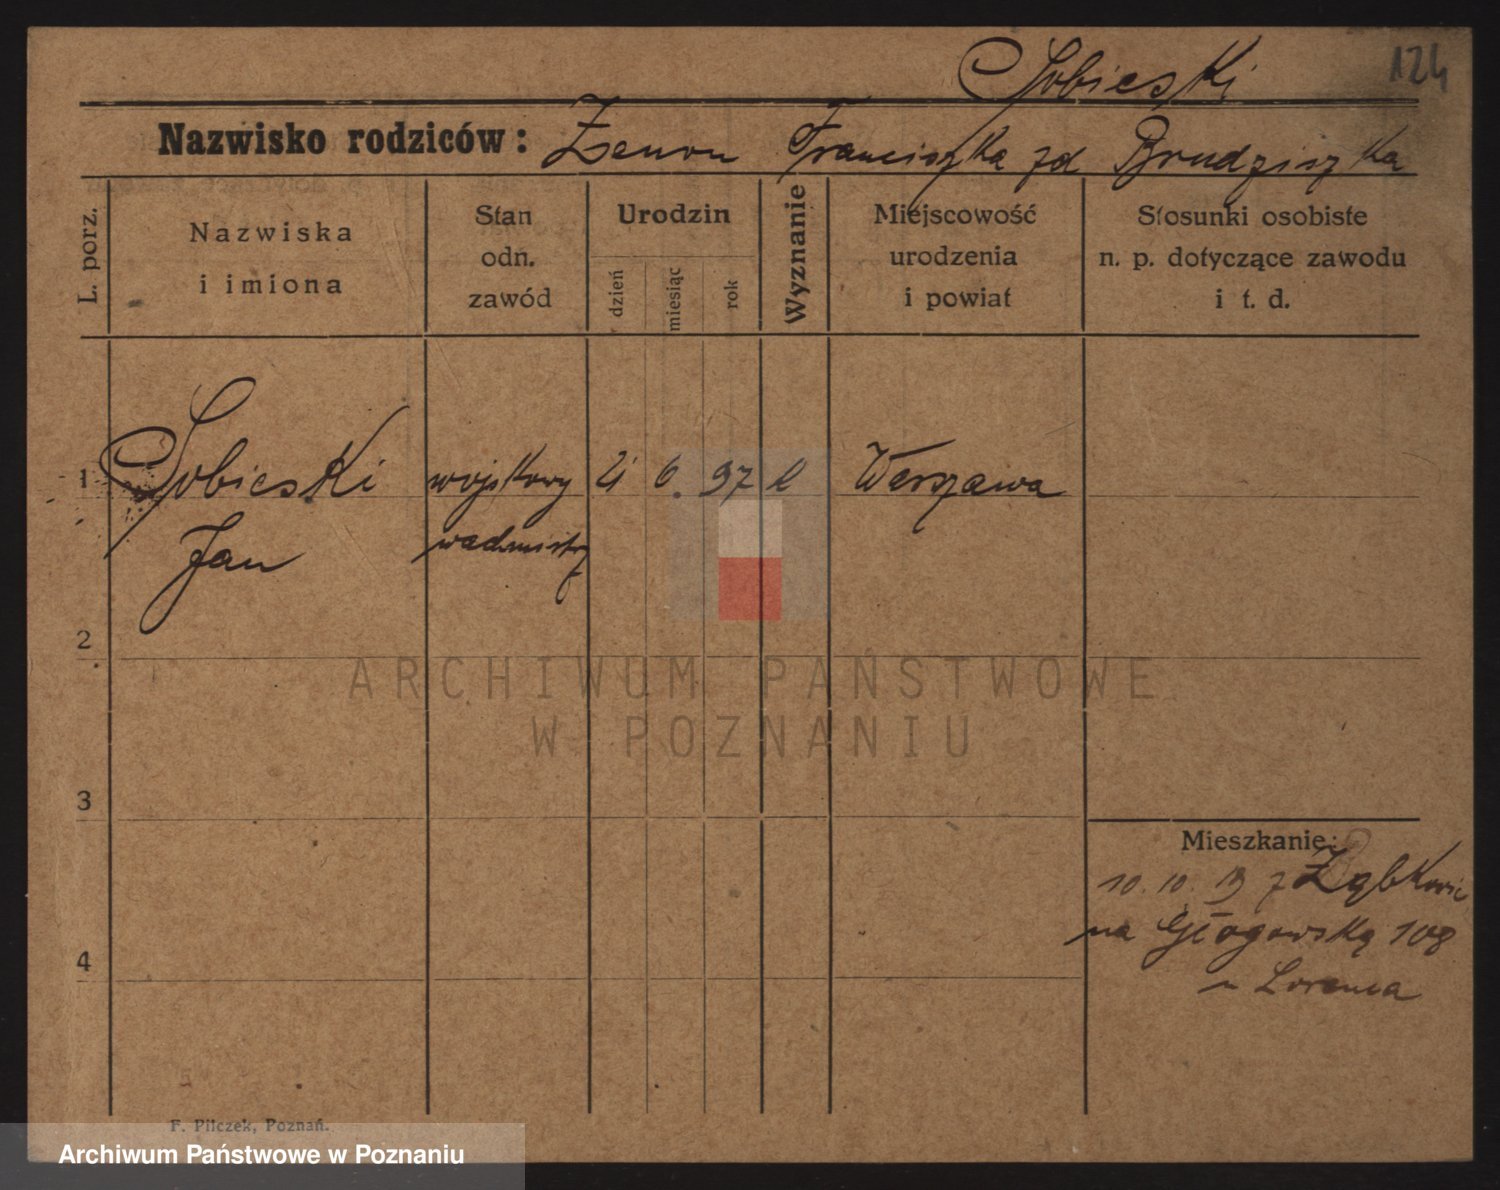 Sobieski
124
Nazwisko rodziców: Zenon Franciszka zd Brudziszka
L. porz.
Nazwiska
i imiona
Stan
odn.
zawód
Urodzin
dzień
miesiąc
rok
Wyznanie
Miejscowość
urodzenia
i powiat
Stosunki osobiste
n. p. dotyczące zawodu
i t. d.
1
Sobieski
Jan
wojskowy
wachmistrz
21
6.
97
k
Warszawa
2
ARCHIWUM PAŃSTWOWE
W POZNANIU
3
Mieszkanie:
10.10. z Ząbkowic
na Głogowską 108
u Lorenca
4
F. Pilczek, Poznań.
Archiwum Państwowe w Poznaniu